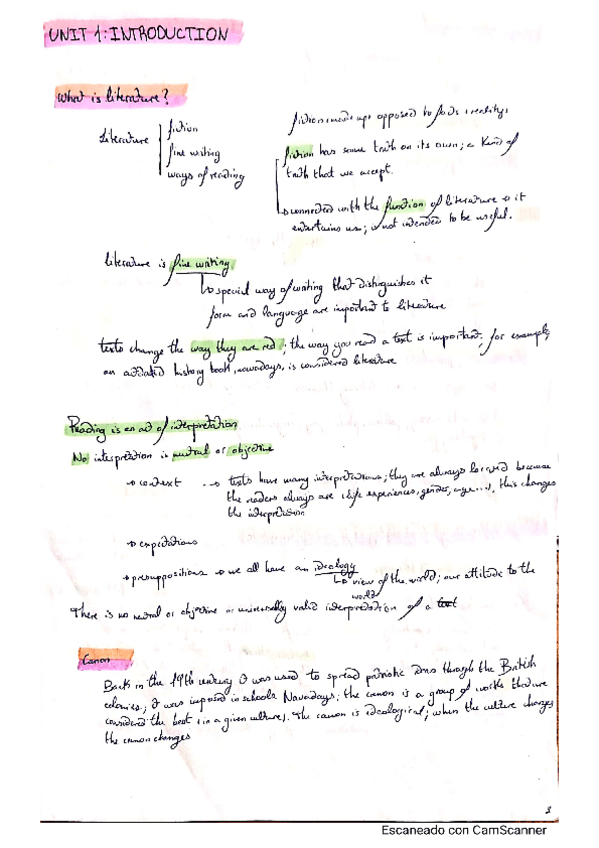 UNIT 1: INTRODUCTION
What is literature?
literature
fiction
fine writing
ways of reading
fiction: made up; opposed to facts, reality.
fiction has some truth on its own; a kind of
truth that we accept.
connected with the function of literature → it
entertains us; is not intended to be useful.
literature is fine writing
special way of writing that distinguishes it
form and language are important to literature
texts change the way they are red; the way you read a text is important. for example,
an history book, nowadays, is considered literature
Reading is an act of interpretation
No interpretation is neutral or objective
→ context → texts have many interpretations; they are always because
the readers always are (life experiences, gender, age...), this changes
the interpretation
→ expectations
→ presuppositions → we all have an ideology
view of the world; our attitude to the
world
There is no neutral or objective or universally valid interpretation of a text
Canon
Back in the 19th century it was used to spread patriotic through the British
colonies; it was imposed in schools. Nowadays, the canon is a group of works that are
considered the best (in a given culture). The canon is ideological; when the culture changes
the canon changes
3
Escaneado con CamScanner